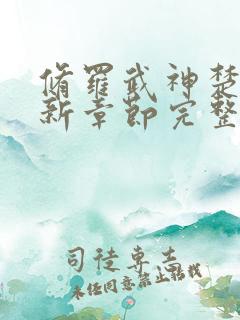 脩羅武神楚
新章節完整
司徒專主
未经同意禁止转载